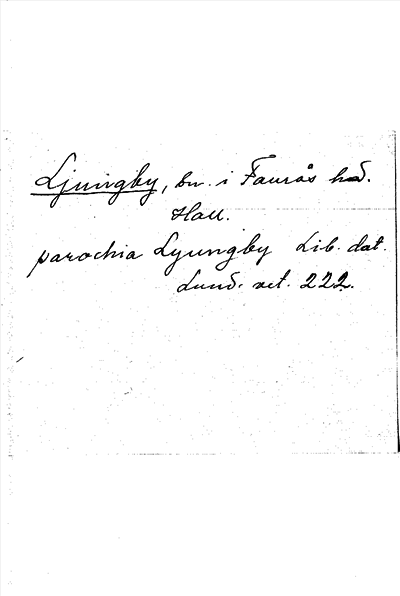 Ljungby, sn. i Faurås hd.
Hall.
parochia Lyungby Lib. dat.
Lund. vet. 222.